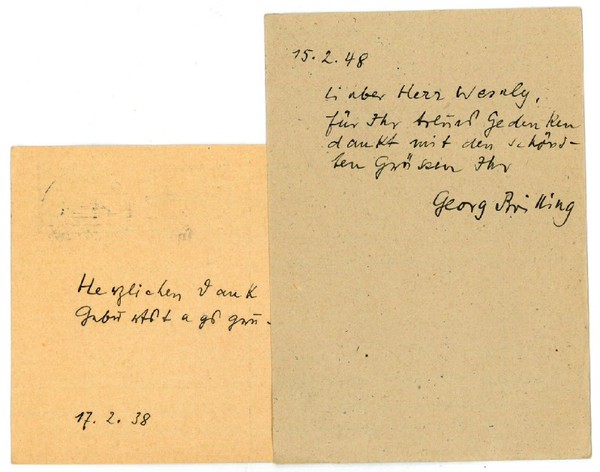 15. 2. 48
Lieber Herr Wesely,
für Ihr treues Gedenken
dankt mit den schöns-
ten Grüssen Ihr
Georg Britting
Herzlichen Dank
Geburtstagsgrü-
17. 2. 38